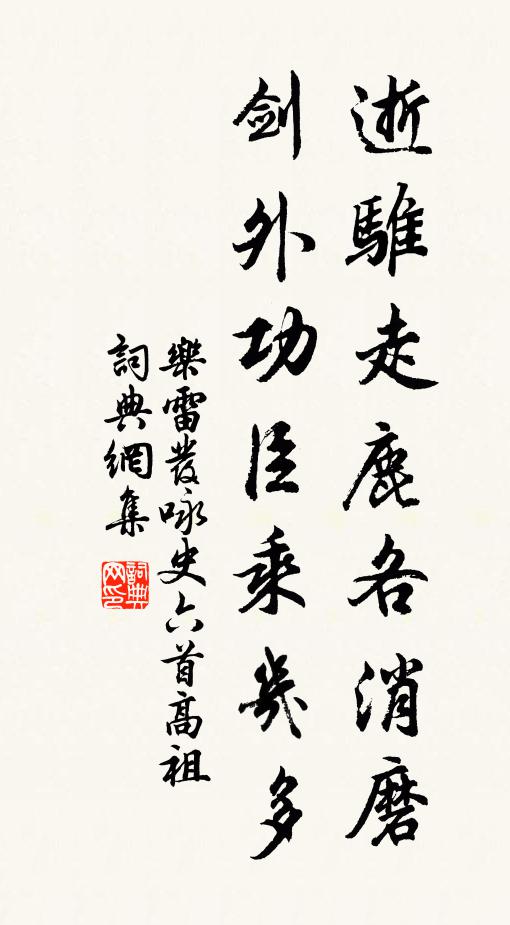 逝騅走鹿各消磨
劍外功臣乘幾多
樂雷發咏史六首高祖
詞典網集
詞典
网印